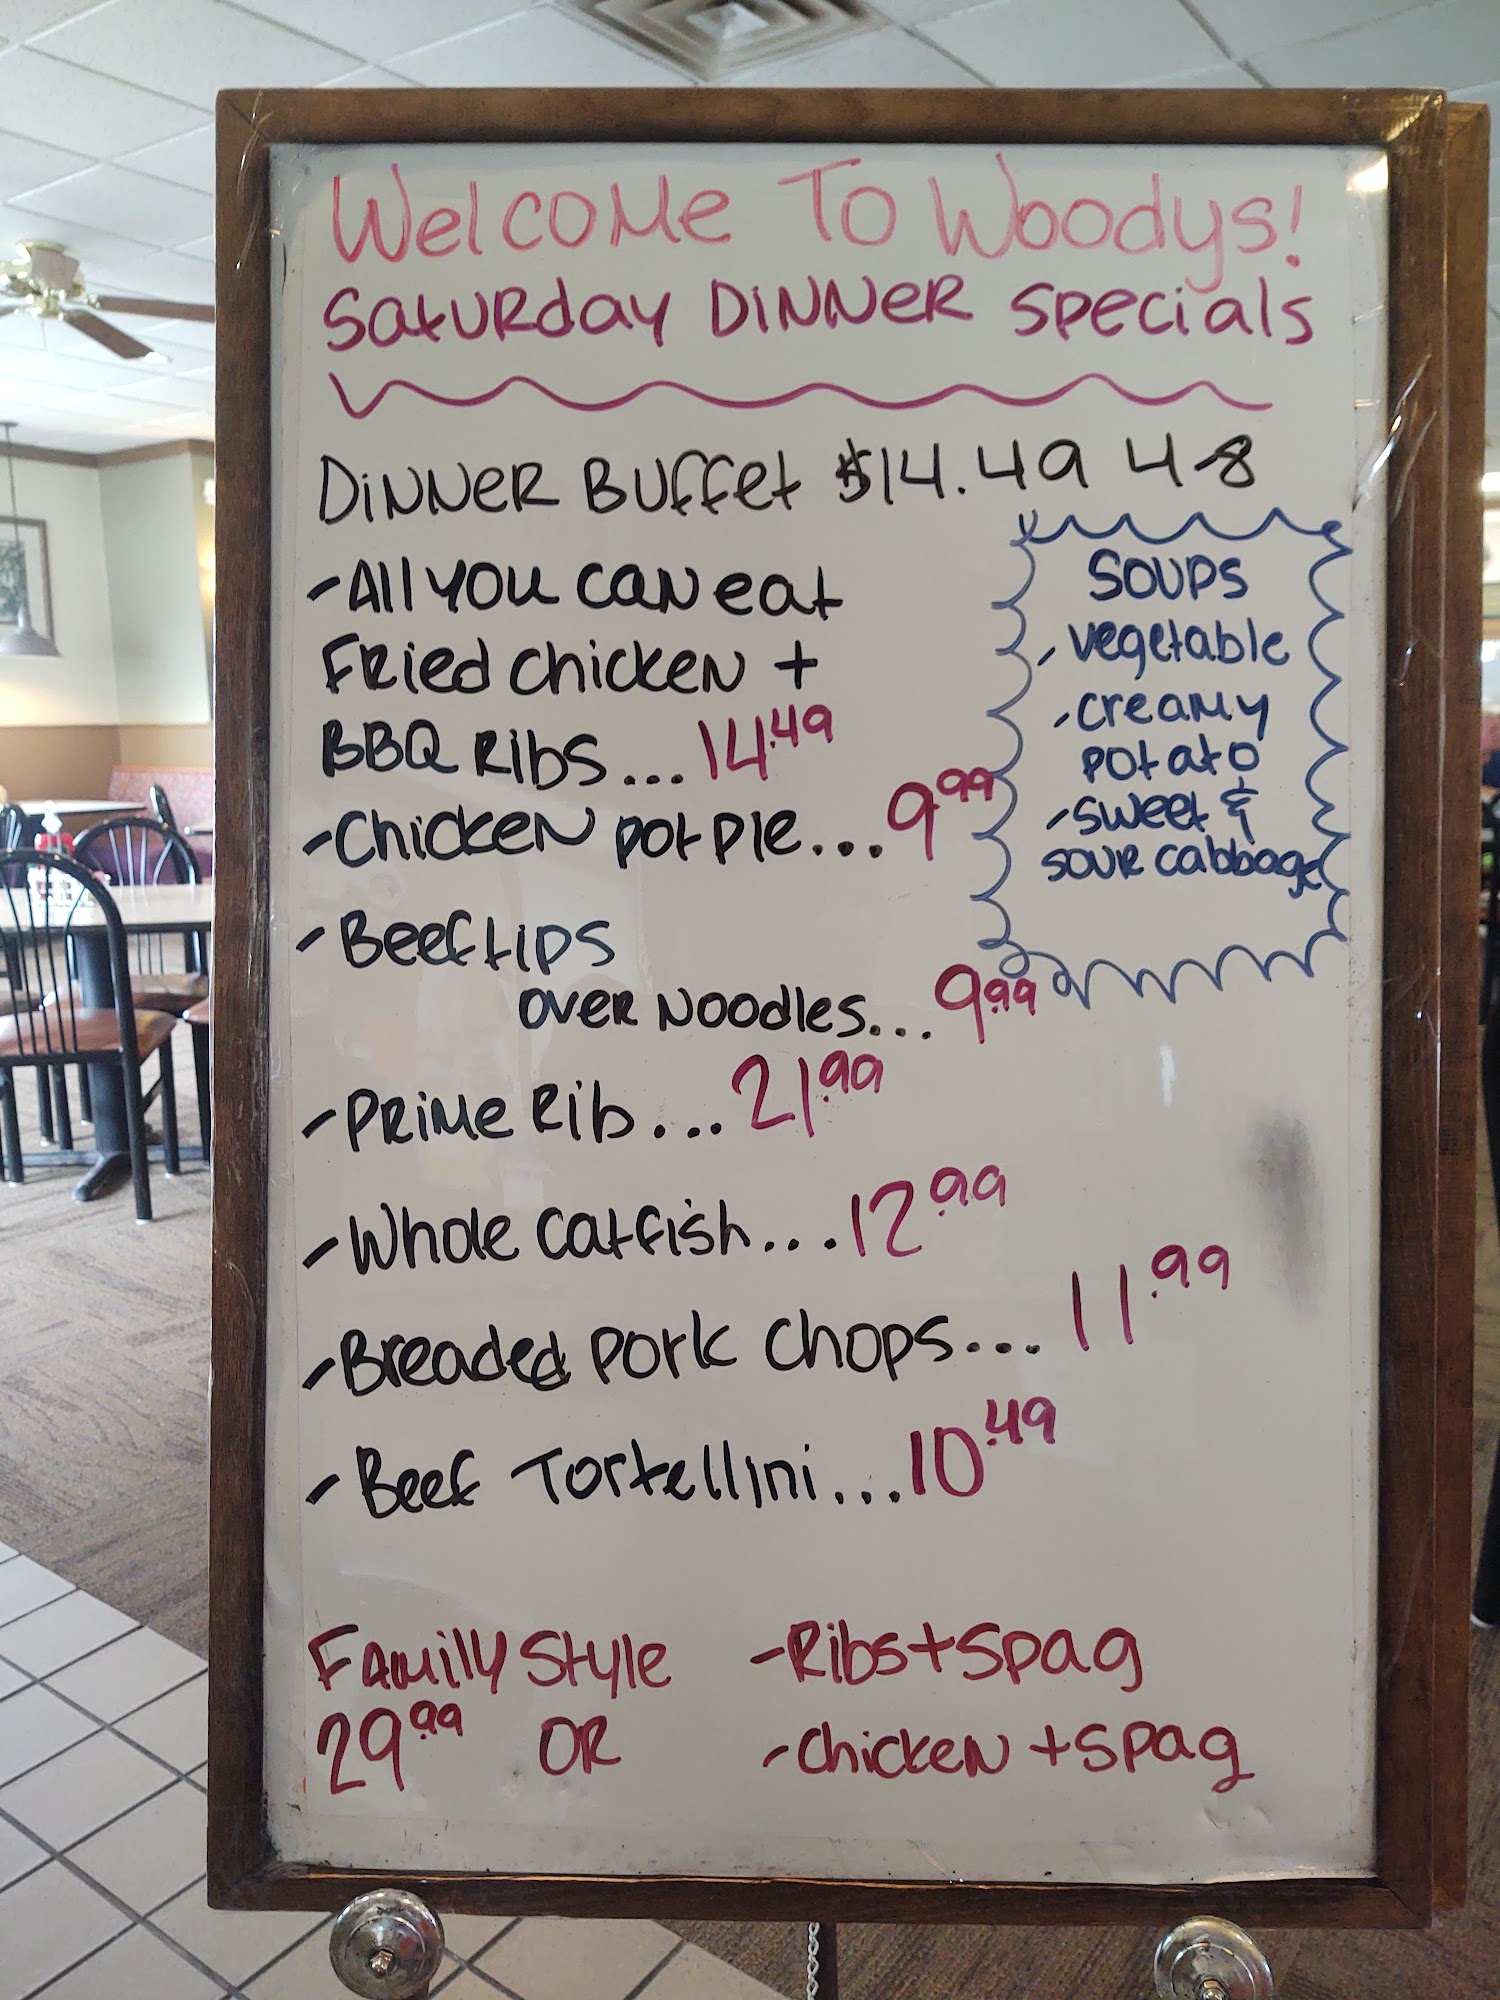 Welcome To Woodys!
Saturday Dinner Specials
Dinner Buffet $14.49 4-8
-All you can eat
Fried chicken +
BBQ Ribs...14.49
-Chicken pot pie...9.99
-Beef tips
over noodles...9.99
-Prime Rib...21.99
-Whole Catfish...12.99
-Breaded pork chops...11.99
-Beef Tortellini...10.49
Soups
-vegetable
-creamy
potato
-sweet &
sour cabbage
Family Style
29.99 OR
-Ribs+spag
-chicken+spag